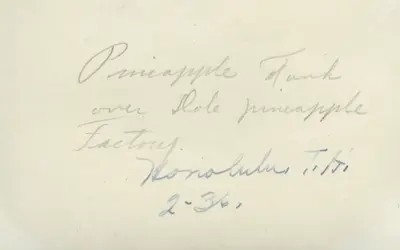 Pineapple Tank
over Dole pineapple
Factory.
Honolulu, T.H.
2-36.